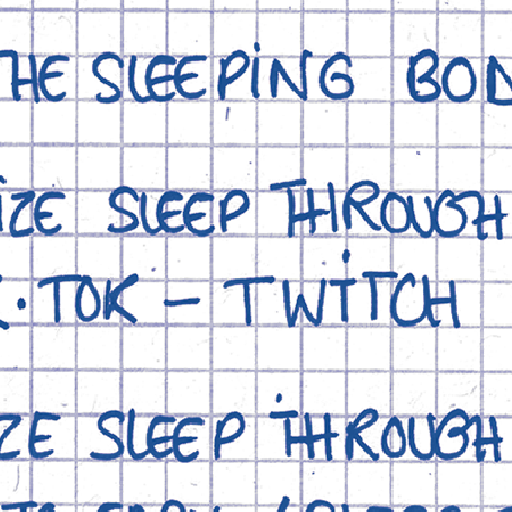 THE SLEEPING BOD
IZE SLEEP THROUGH
K·TOK – TWITCH
ZE SLEEP THROUGH